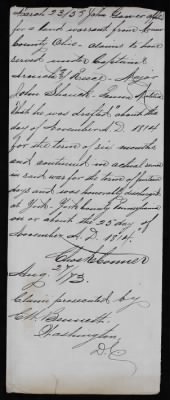 March 23/55 John
for a land warrant from
County, Ohio. claims to have
served under Captain
Major
John
that he was drafted about the
day of November A.D. 1814
for the term of six months
and continued in actual service
in said war for the term of fourteen
days and was honorably discharged
at York. York County Pennsylvania
on or about the 25 day of
November A.D. 1814.
Aug. 27/73.
Claim prosecuted by
C.W. Bennett
Washington
D.C.